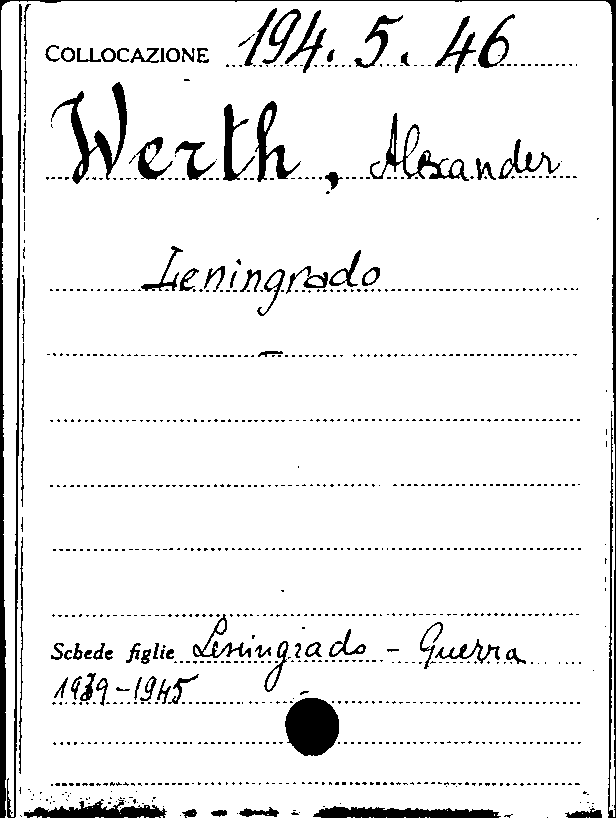 COLLOCAZIONE 194. 5. 46
Werth, Alexander
Leningrado
Schede figlie Leningrado - Guerra
1939-1945